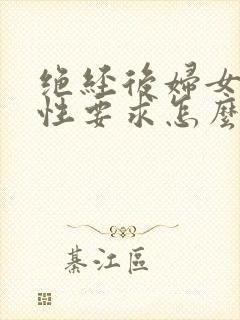 绝经後婦女
性要求怎麽
綦江區